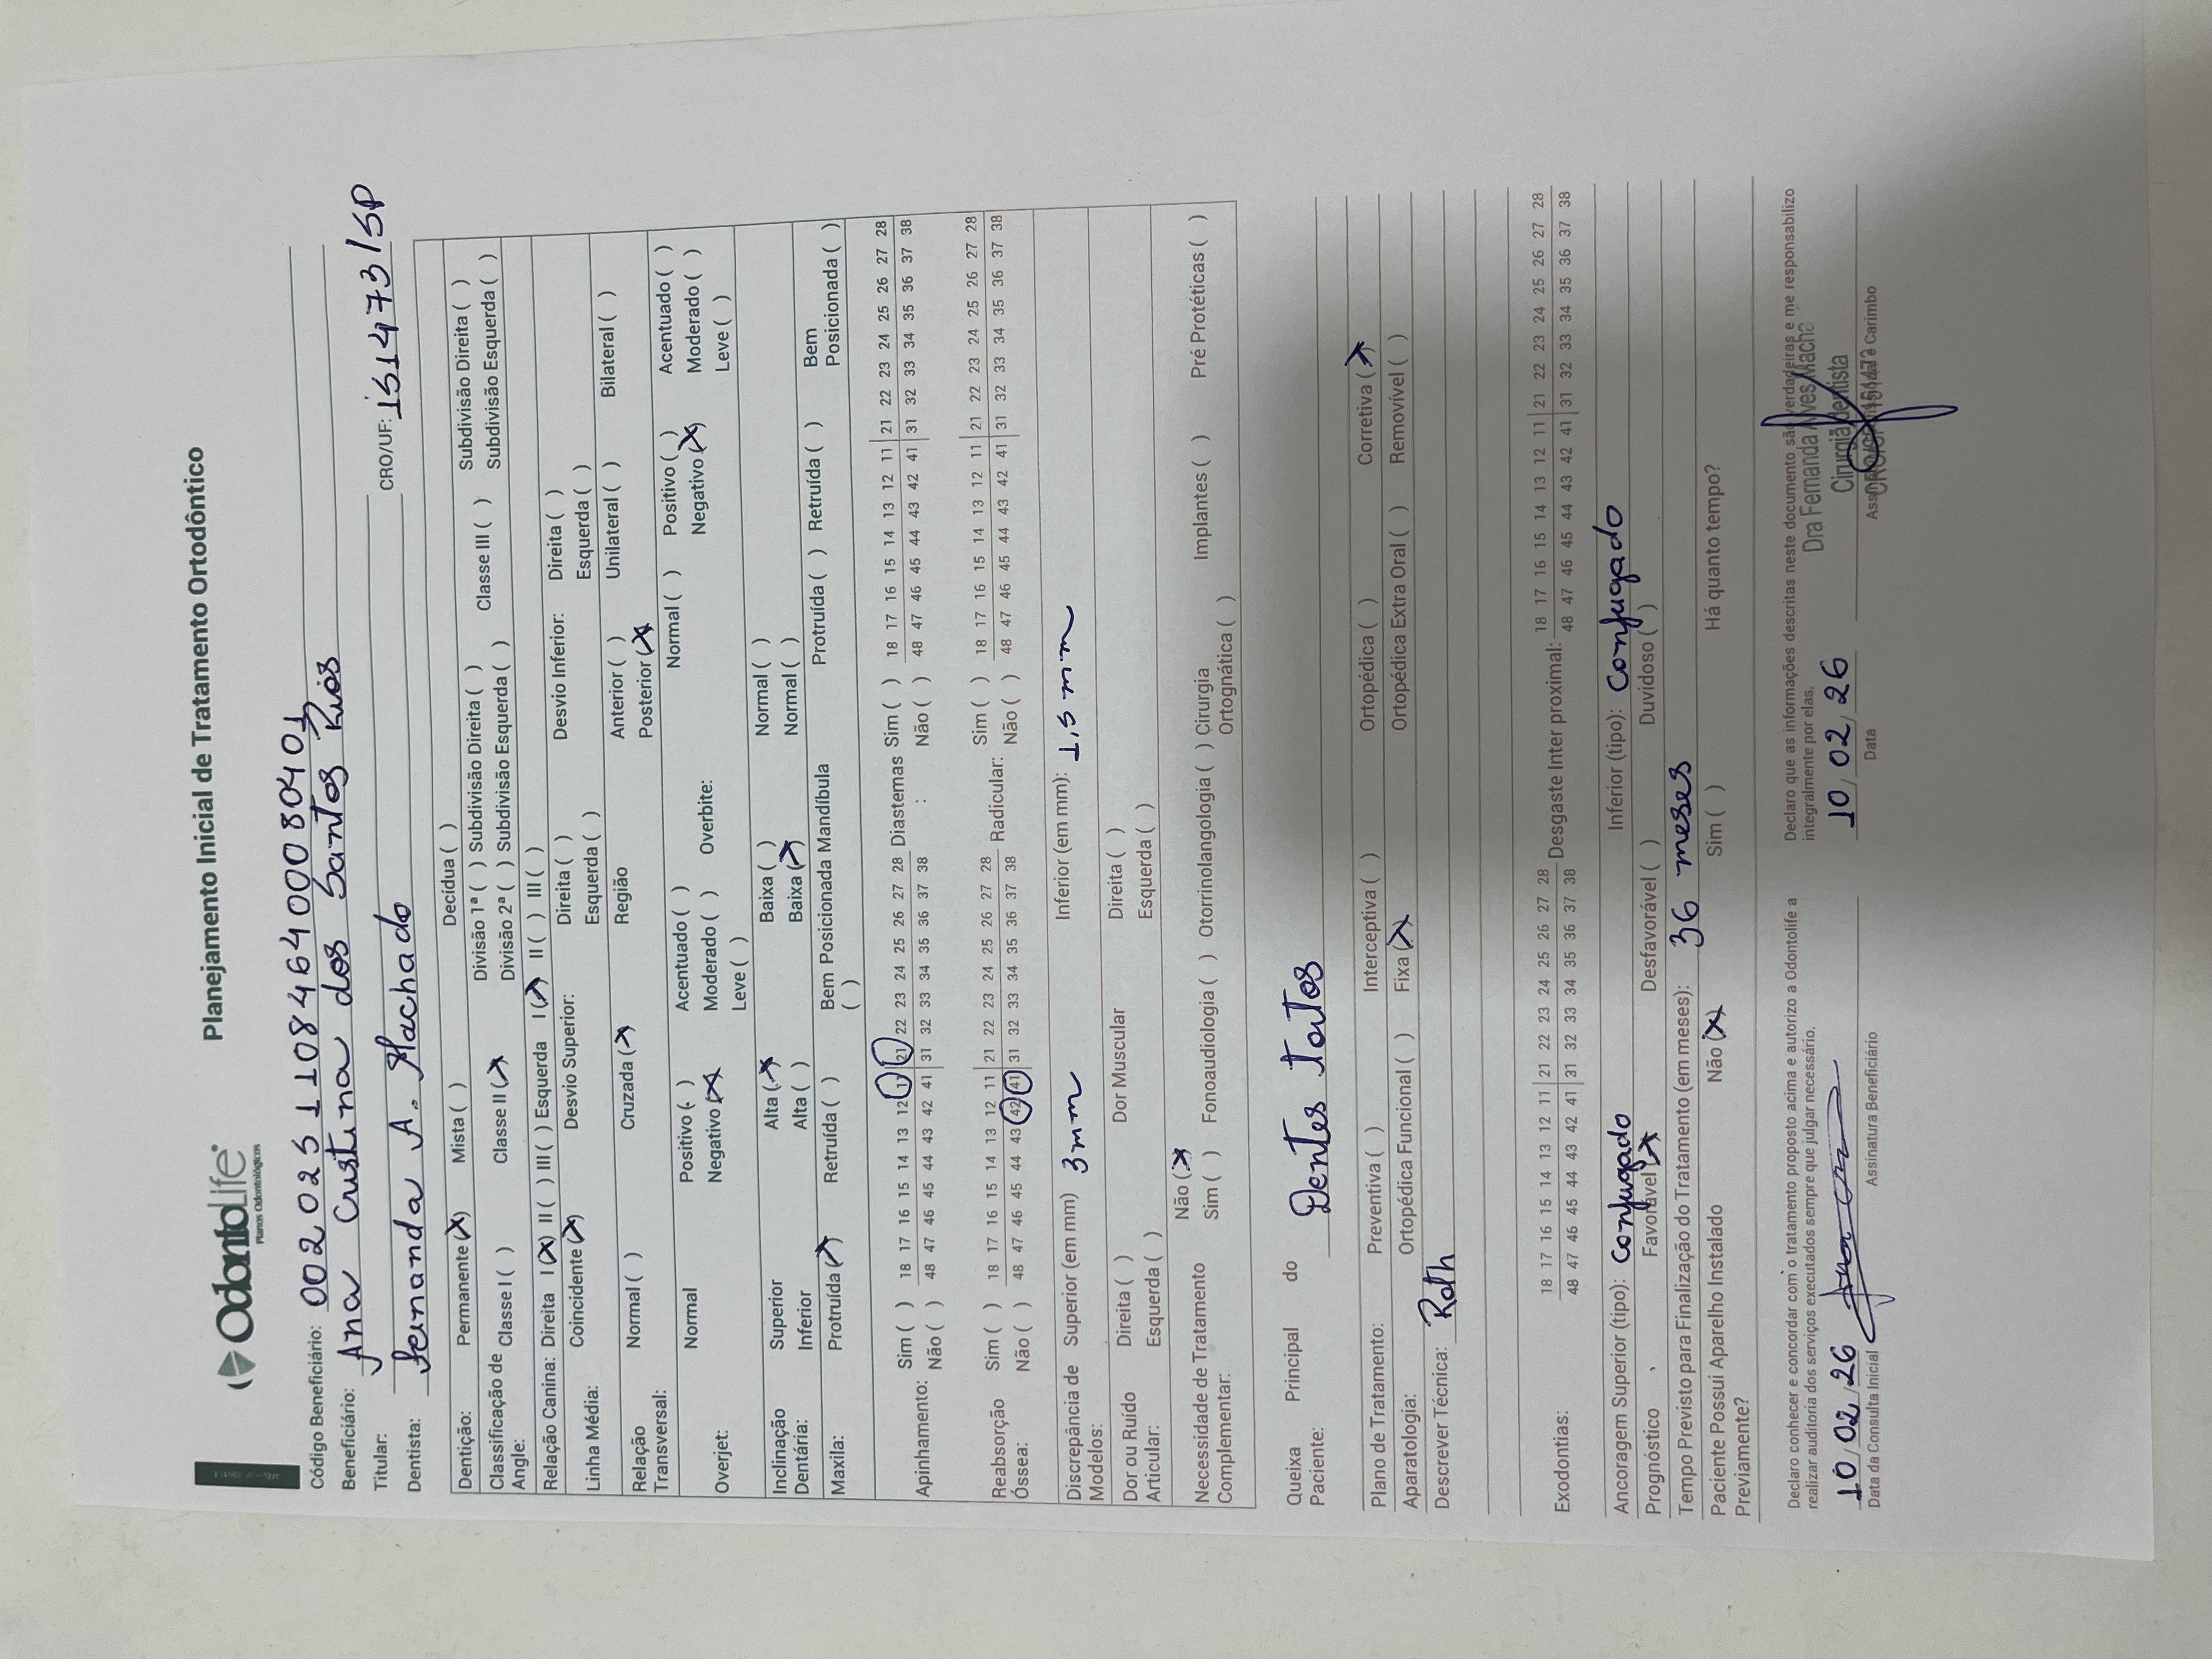 OdontoLife
Planos Odontológicos
Planejamento Inicial de Tratamento Ortodôntico
Código Beneficiário: 00202511084640008040 1
Beneficiário: Ana Cristina dos Santos Rios
Titular:
Dentista: Fernanda A. Machado CRO/UF: 151473/SP
Dentição: Permanente (X) Mista ( ) Decídua ( )
Classificação de Angle: Classe I ( ) Classe II (X) Divisão 1ª ( ) Subdivisão Direita ( ) Classe III ( ) Subdivisão Direita ( )
Divisão 2ª ( ) Subdivisão Esquerda ( ) Subdivisão Esquerda ( )
Relação Canina: Direita I (X) II ( ) III ( ) Esquerda I (X) II ( ) III ( )
Linha Média: Coincidente (X) Desvio Superior: Direita ( ) Desvio Inferior: Direita ( )
Esquerda ( ) Esquerda ( )
Relação Transversal: Normal ( ) Cruzada (X) Região Anterior ( ) Unilateral ( ) Bilateral ( )
Posterior (X)
Overjet: Normal Positivo ( ) Acentuado ( ) Overbite: Normal ( ) Positivo ( ) Acentuado ( )
Negativo (X) Moderado ( ) Negativo (X) Moderado ( )
Leve ( ) Leve ( )
Inclinação Dentária: Superior Alta (X) Baixa ( ) Normal ( )
Inferior Alta ( ) Baixa (X) Normal ( )
Maxila: Protruída (X) Retruída ( ) Bem Posicionada ( ) Mandíbula Protruída ( ) Retruída ( ) Bem Posicionada ( )
Apinhamento: Sim ( ) 18 17 16 15 14 13 12 11 | 21 22 23 24 25 26 27 28 Diastemas : Sim ( ) 18 17 16 15 14 13 12 11 | 21 22 23 24 25 26 27 28
Não ( ) 48 47 46 45 44 43 42 41 | 31 32 33 34 35 36 37 38 Não ( ) 48 47 46 45 44 43 42 41 | 31 32 33 34 35 36 37 38
Reabsorção Óssea: Sim ( ) 18 17 16 15 14 13 12 11 | 21 22 23 24 25 26 27 28 Radicular: Sim ( ) 18 17 16 15 14 13 12 11 | 21 22 23 24 25 26 27 28
Não ( ) 48 47 46 45 44 43 42 41 | 31 32 33 34 35 36 37 38 Não ( ) 48 47 46 45 44 43 42 41 | 31 32 33 34 35 36 37 38
Discrepância de Modelos: Superior (em mm) 3mm Inferior (em mm): 1,5 mm
Dor ou Ruído Articular: Direita ( ) Dor Muscular Direita ( )
Esquerda ( ) Esquerda ( )
Necessidade de Tratamento Complementar: Não (X)
Sim ( ) Fonoaudiologia ( ) Otorrinolangologia ( ) Cirurgia Ortognática ( ) Implantes ( ) Pré Protéticas ( )
Queixa Principal do Paciente: Dentes tortos
Plano de Tratamento: Preventiva ( ) Interceptiva ( ) Ortopédica ( ) Corretiva (X)
Aparatologia: Ortopédica Funcional ( ) Fixa (X) Ortopédica Extra Oral ( ) Removível ( )
Descrever Técnica: Roth
Exodontias: 18 17 16 15 14 13 12 11 | 21 22 23 24 25 26 27 28 Desgaste Inter proximal: 18 17 16 15 14 13 12 11 | 21 22 23 24 25 26 27 28
48 47 46 45 44 43 42 41 | 31 32 33 34 35 36 37 38 48 47 46 45 44 43 42 41 | 31 32 33 34 35 36 37 38
Ancoragem Superior (tipo): Conjugado Inferior (tipo): Conjugado
Prognóstico Favorável (X) Desfavorável ( ) Duvidoso ( )
Tempo Previsto para Finalização do Tratamento (em meses): 36 meses
Paciente Possui Aparelho Instalado Previamente? Não (X) Sim ( ) Há quanto tempo?
Declaro conhecer e concordar com o tratamento proposto acima e autorizo a Odontolife a
realizar auditoria dos serviços executados sempre que julgar necessário.
Declaro que as informações descritas neste documento são verdadeiras e me responsabilizo
integralmente por elas.
10/02/26
Data da Consulta Inicial
Assinatura Beneficiário
10/02/26
Data
Dra Fernanda Alves Macha
Cirurgiã dentista
Assinatura e Carimbo